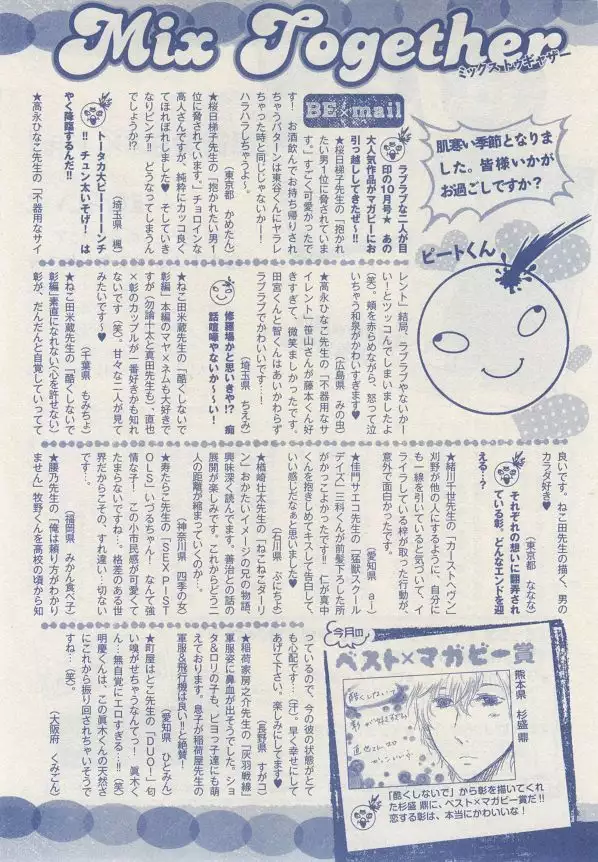 Mix Together
ミックス トゥギャザー
肌寒い季節となりま
した。皆様いかが
お過ごしですか?
ビートくん
BE×mail
ラブラブな二人が目
印の10月号★ あの
大人気作品がマガビーにお
引っ越ししてきたぜ〜!!
★桜日梯子先生の「抱かれ
たい男1位に脅されていま
す。」すごく可愛かったで
す! お酒飲んでお持ち帰りされ
ちゃうパターンは東谷くんにヤラレ
ちゃった時と同じじゃないかー!
ハラハラしちゃうよ〜。
(東京都 かめたん)
★桜日梯子先生の「抱かれたい男1
位に脅されています。」チョロインな
高人さんですが、純粋にカッコ良く
てほれぼれしました♥ そしていき
なりピンチ!! どうなってしまうん
でしょうか!?
(埼玉県 楓)
トータカ大ピーーーーンチ
!! チュン太いそげ! は
やく降臨するんだ!!
★高永ひなこ先生の「不器用なサイ
レント」結局、ラブラブやないかー
い!とツッコんでしまいましたよ
(笑)。頬を赤らめながら、怒って泣
いちゃう和泉がかわいすぎます♥
(広島県 みの虫)
★高永ひなこ先生の「不器用なサ
イレント」笹山さんが藤本くん好
きすぎて、微笑ましかったです。
田宮くんと智くんはあいかわらず
ラブラブでかわいいです…!
(埼玉県 ちえみ)
修羅場かと思いきや!? 痴
話喧嘩やないか〜〜い!
★ねこ田米蔵先生の「酷くしないで
彰編」本編のマヤ×ネムも大好きで
すが(勿論十太と真田先生も)、直也
×彰のカップルが一番好きかも知れ
ないです(笑)。甘々な二人が見て
みたいです〜♥
(千葉県 もみちよ)
★ねこ田米蔵先生の「酷くしないで
彰編」素直になれない(心を許せない)
彰が、だんだんと自覚していってて
良いです。ねこ田先生の描く、男の
カラダ好き♥
(東京都 ななな)
それぞれの想いに翻弄され
ている彰、どんなエンドを迎
える…?
★緒川千世先生の「カーストヘヴン」
刈野が他の人にするように、自分に
も一線を引いていると気づいて、イ
ライラしている梓が取った行動が、
意外で面白かったです。
(愛知県 a-)
★佳門サエコ先生の「猛獣スクール
デイズ」三科くんが前髪下ろした所
がかっこよかったです!! 仁が真中
くんを抱きしめてキスして告白して、
いい感じだなぁと思いました♥
(石川県 ぷにちよ)
★楢崎壮太先生の「ねこねこダーリ
ン」おかたいイメージの兄の物語、
興味深く読んでます。善治との話の
展開が楽しみです。これからどう二
人の距離が縮まっていくのか…。
(神奈川県 四季の女)
★寿たらこ先生の「SEX PIST
OLS」いづるちゃん! なんて強
情な子! この小市民感が可愛くて
たまらないですね…。格差のある世
界だからこその、すれ違い…切ない
です…。
(福岡県 みかん食べ子)
★腰乃先生の「俺は頼り方がわかり
ません」牧野くんを高校の頃から知
っているので、今の彼の状態がとて
も心配です…(汗)。早く幸せにして
あげて下さい。楽しみにしてます♥
(長野県 すがコ)
★稲荷家房之介先生の「灰羽戦線」
軍服姿に鼻血が出そうでした。ショ
タ&ロリの子も、ピヨっ子達にも萌
えております。息子が稲荷屋先生の
軍服&飛行機は良い!!と絶賛!
(愛知県 ひとみん)
★町屋はとこ先生の「DUO!」匂
い嗅がせちゃうなんてっ! 眞木く
ん…無自覚にエロすぎる…!!(笑)
明慶くんは、この眞木くんの天然さ
にこれから振り回されちゃいそうで
すね…(笑)。
(大阪府 くみごん)
今月の
ベスト×マガビー賞
熊本県 杉盛 鼎
酷くしないで
「酷くしないで」から彰を描いてくれ
た杉盛 鼎に、ベスト×マガビー賞だ!!
恋する彰は、本当にかわいいな!